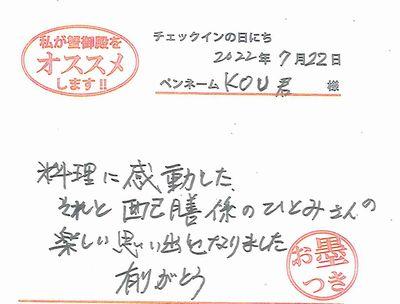 私が蟹御殿を
オススメ
します!!
チェックインの日にち
2022年7月22日
ペンネーム KOU君 様
料理に感動した、
それと配膳係のひとみさんの
楽しい思い出となりました
有りがとう
お墨
つき